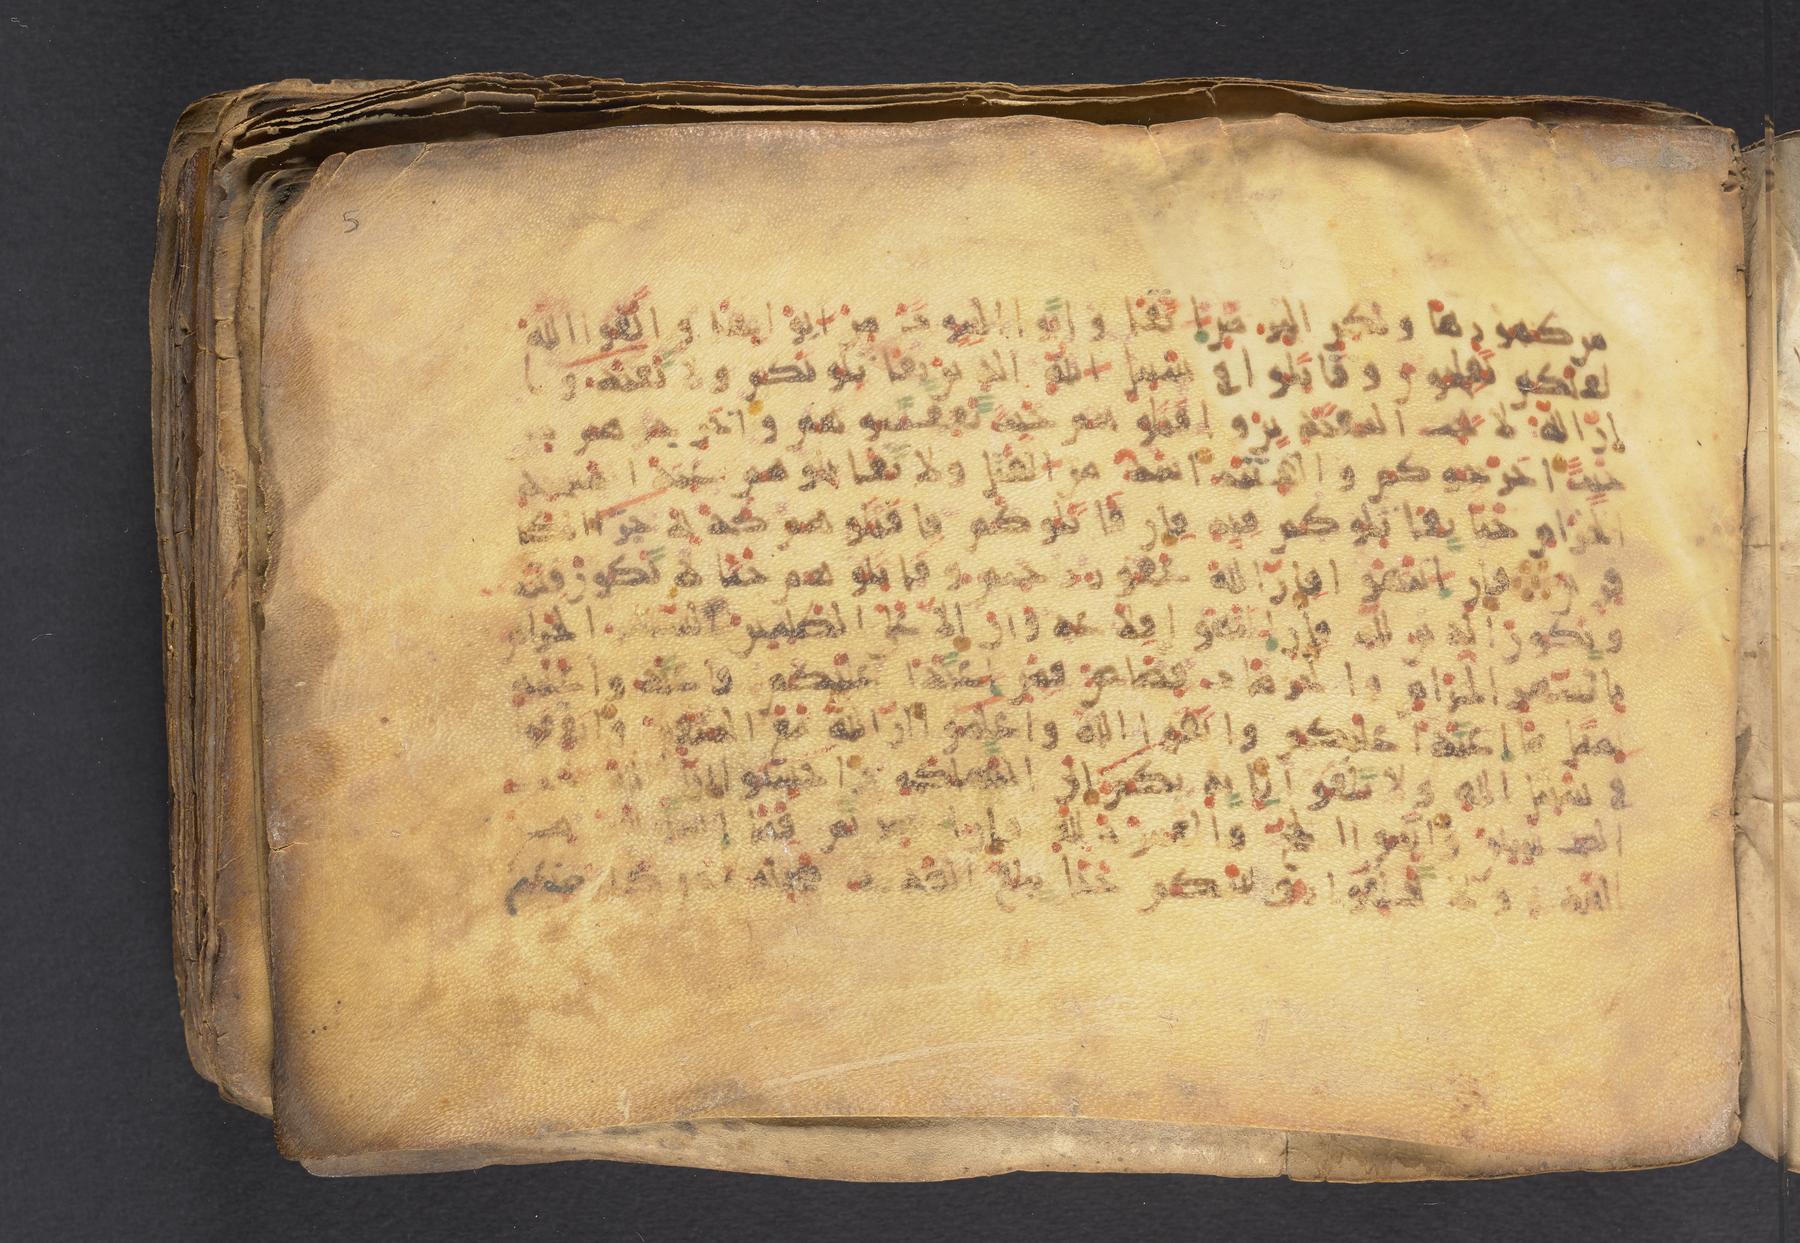 5
من ظهورها ولكن البر من اتقى واتوا البيوت من ابوابها واتقوا الله
لعلكم تفلحون وقاتلوا في سبيل الله الذين يقاتلونكم ولا تعتدوا
ان الله لا يحب المعتدين واقتلوهم حيث ثقفتموهم واخرجوهم من
حيث اخرجوكم والفتنة اشد من القتل ولا تقاتلوهم عند المسجد
الحرام حتى يقاتلوكم فيه فان قاتلوكم فاقتلوهم كذلك جزا الكا
فرين فان انتهوا فان الله غفور رحيم وقاتلوهم حتى لا تكون فتنة
ويكون الدين لله فان انتهوا فلا عدوان الا على الظلمين الشهر الحرام
بالشهر الحرام والحرمات قصاص فمن اعتدى عليكم فاعتدوا عليه
بمثل ما اعتدى عليكم واتقوا الله واعلموا ان الله مع المتقين وانفقوا
في سبيل الله ولا تلقوا بايديكم الى التهلكة واحسنوا ان الله يحب
المحسنين واتموا الحج والعمرة لله فان احصرتم فما استيسر من
الهدي ولا تحلقوا روسكم حتى يبلغ الهدي محله فمن كان منكم